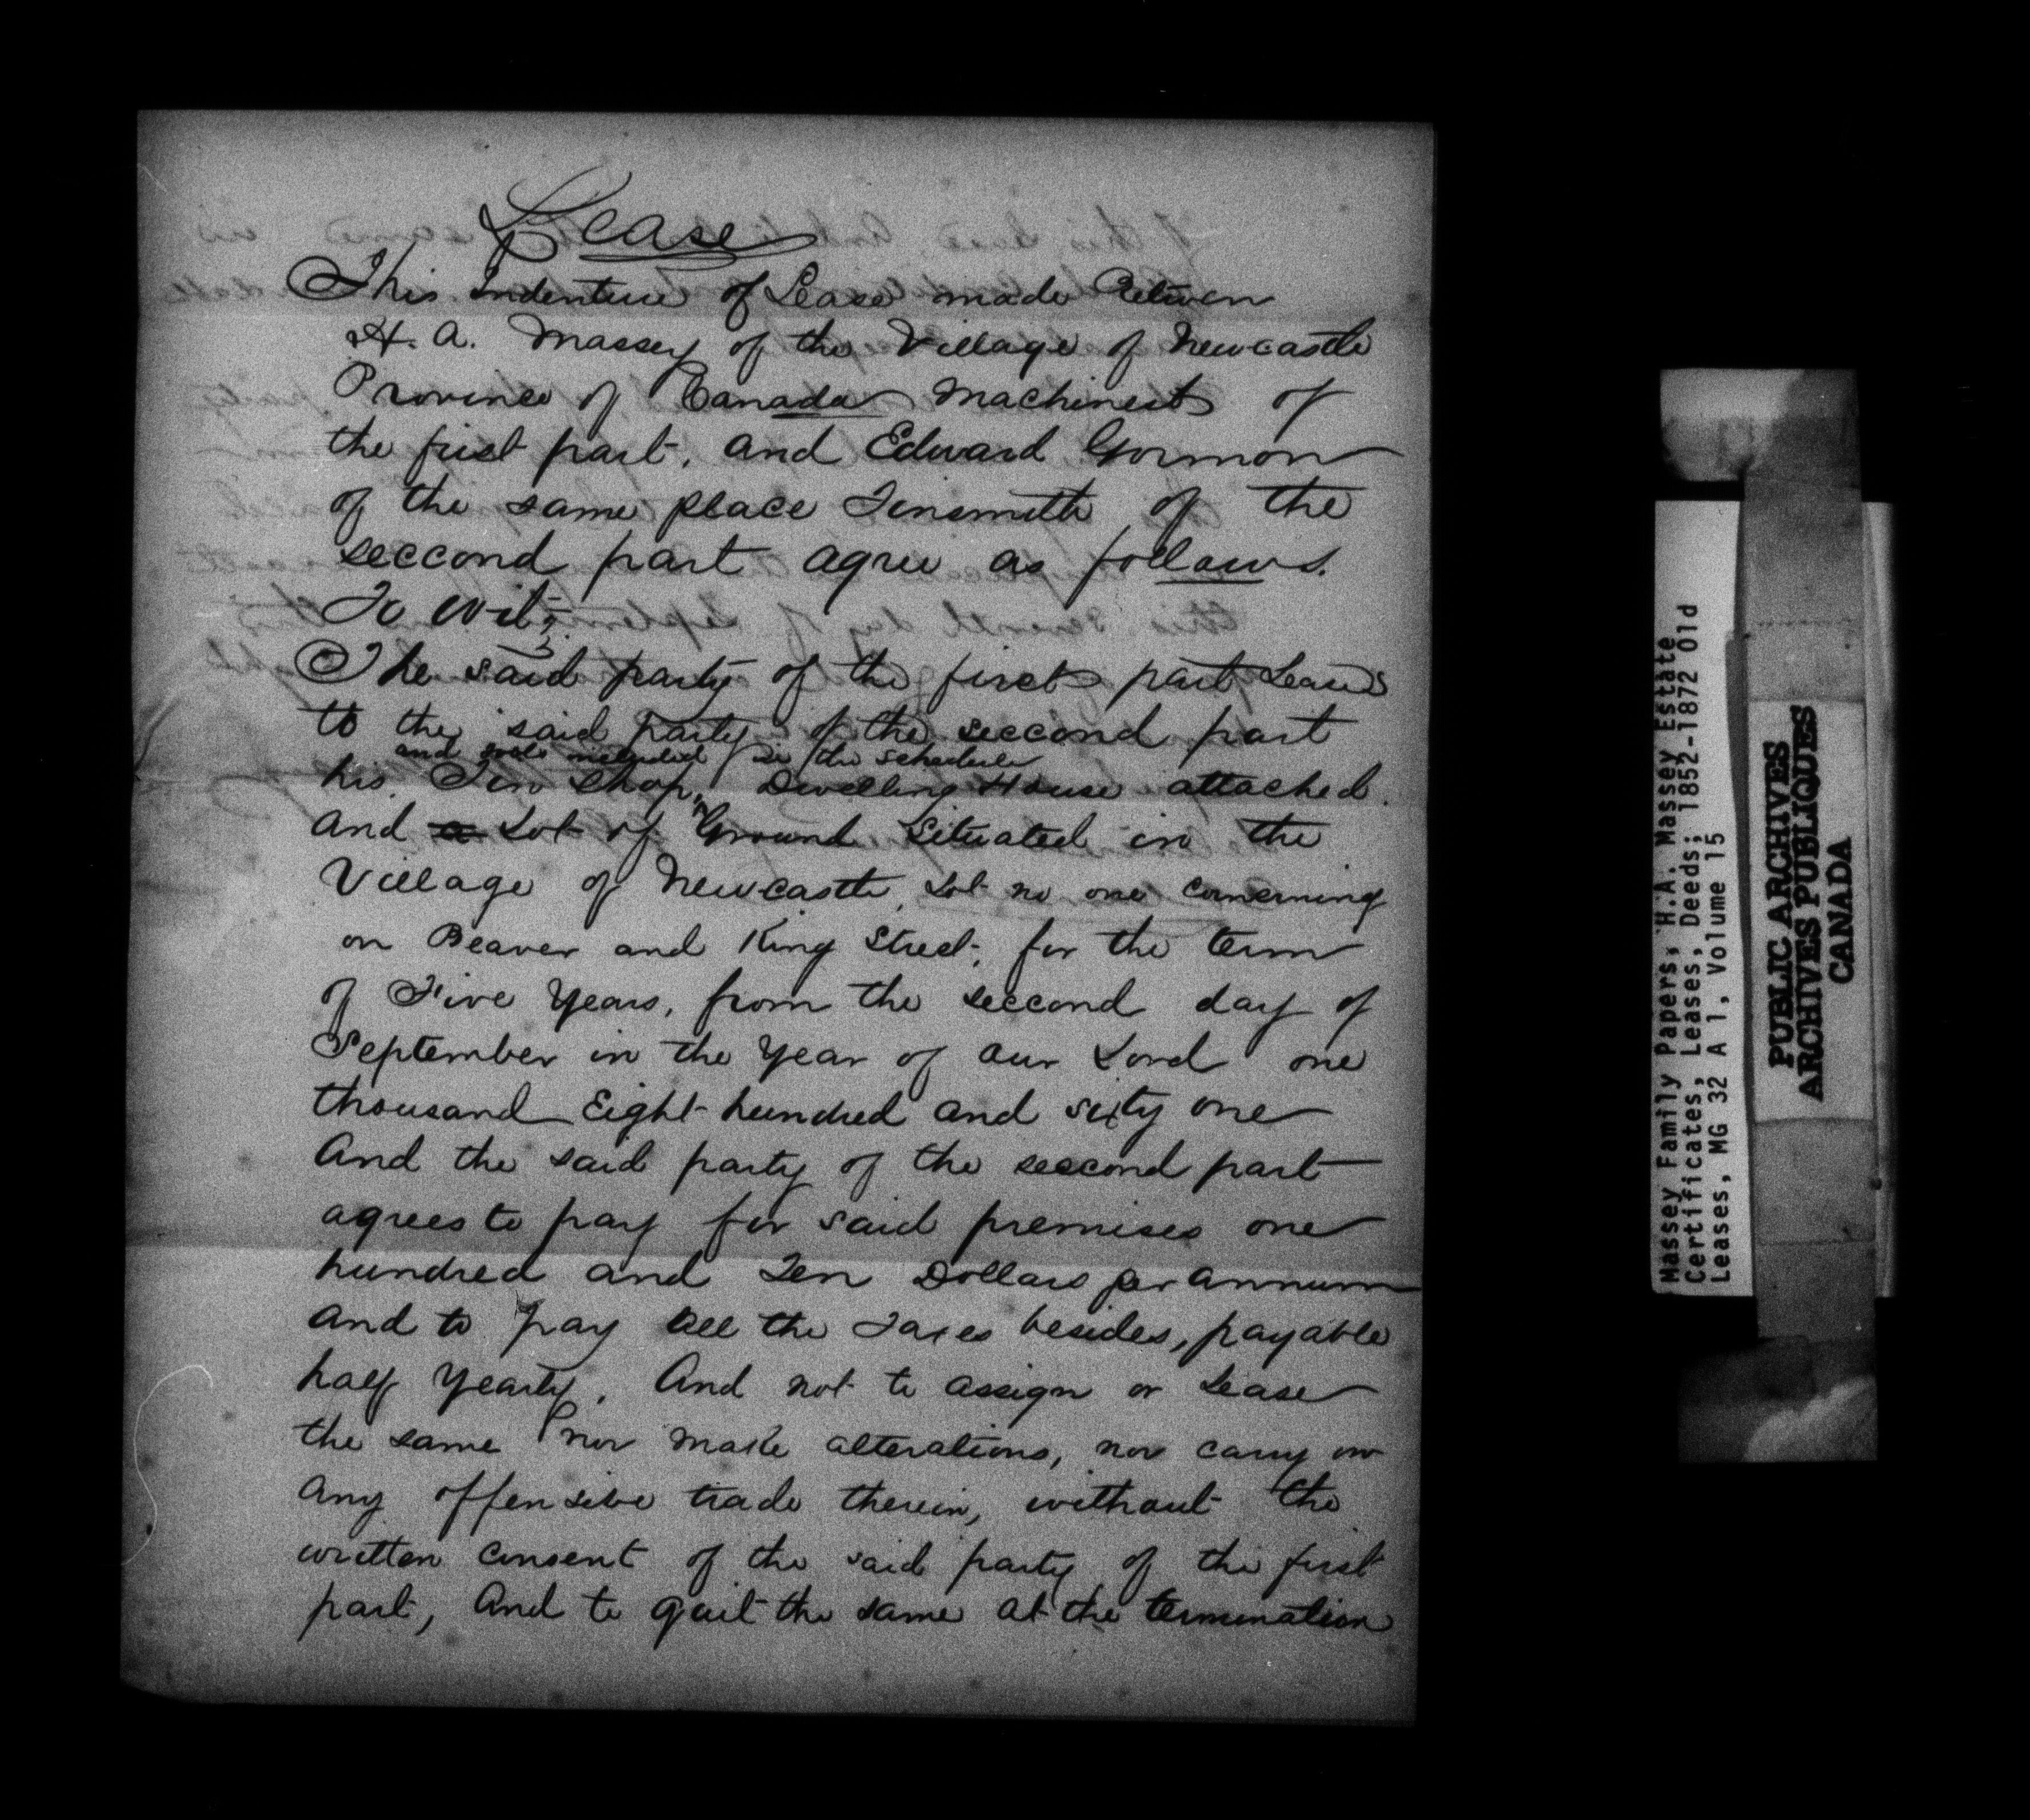 Lease
This Indenture of Lease made Between
H. A. Massey of the Village of Newcastle
Province of Canada Machinest of
the first part, and Edward Gormon
of the same place Tinsmith of the
seccond part agree as follows.
To Wit;
The said party of the first part Leases
to the said party of the seccond part
and tools included in the schedule
his Tin Shop, Dwelling House attached.
and a Lot of Ground Situated in the
Village of Newcastle, Lot no one cornerning
on Beaver and King Street, for the term
of Five Years, from the seccond day of
September in the Year of our Lord one
thousand Eight hundred and sixty one
And the said party of the seccond part
agrees to pay for said premises one
hundred and Ten Dollars per annum
and to pay all the Taxes besides, payable
half Yearly, And not to assign or Lease
the same nor make alterations, nor carry on
any offensive trade therein, without the
written consent of the said party of the first
part, And to quit the same at the termination
Massey Family Papers, H.A. Massey Estate
Certificates, Leases, Deeds; 1852-1872 Old
Leases, MG 32 A 1, Volume 15
PUBLIC ARCHIVES
ARCHIVES PUBLIQUES
CANADA